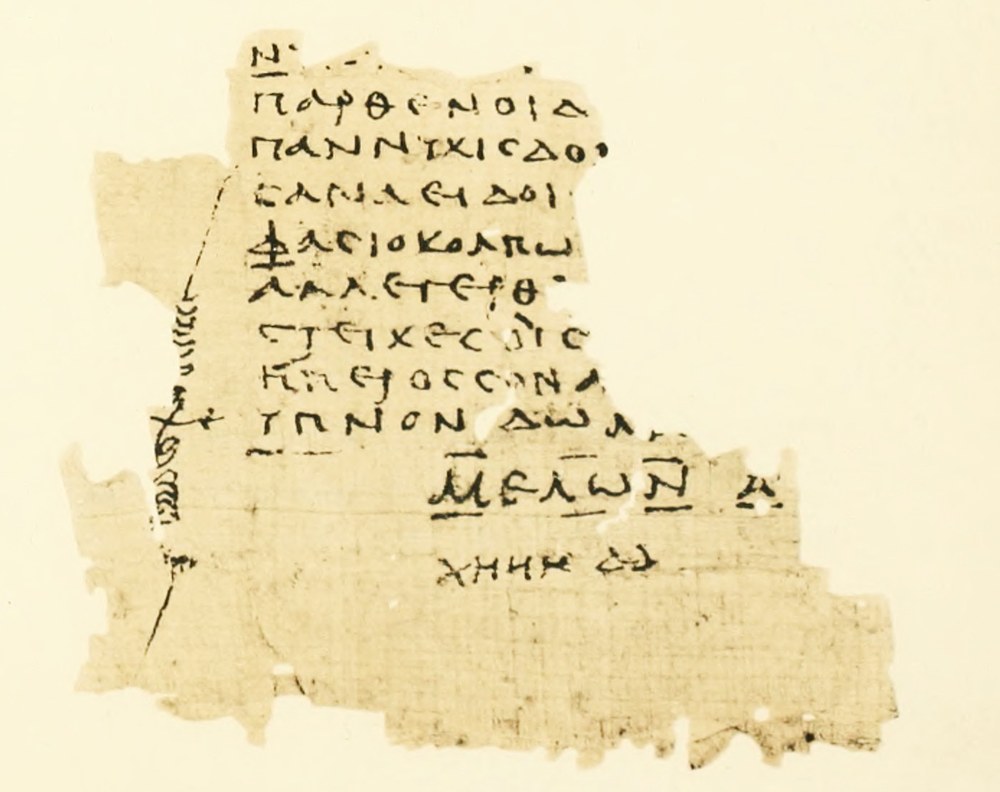 Ν
ΠΑΡΘΕΝΟΙΔ
ΠΑΝΝΥΧΙϹΔΟΙ
ϹΑΝΑΕΙΔΟΙ
ΦΑϹΙΟΚΟΛΠΩ
ΑΛΛΕΓΕΡΘ
ϹΤΕΙΧΕϹΟΙϹ
ΗΠΕΡΟϹϹΟΝΑ
ΥΠΝΟΝ ΔΩΜ
ΜΕΛΩΝ Α
ΧΗΗΗΔΔ